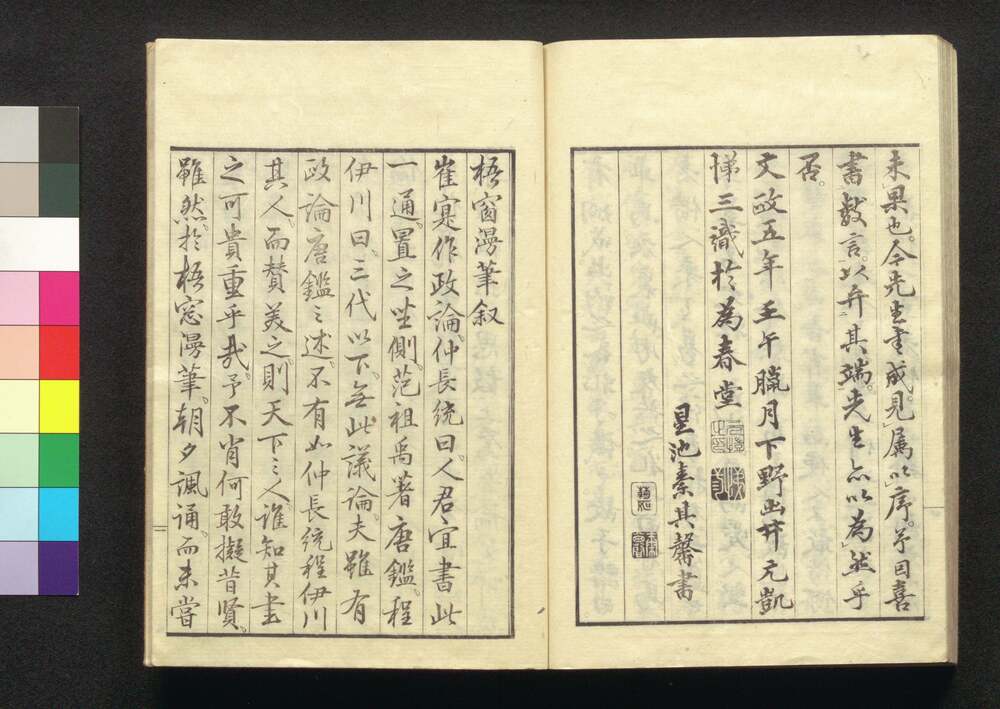 未果也。今先生書成。見属以序。予因喜
書数言。以弁其端。先生亦以為然乎
否。
文政五年壬午臘月下野出井元凱
悌三識於為春堂
星池秦其馨書
梧窗漫筆叙
崔寔作政論。仲長統曰。人君宜書此
一通。置之坐側。范祖禹著唐鑑。程
伊川曰。三代以下。無此議論。夫雖有
政論唐鑑之述。不有如仲長統程伊川
其人。而賛美之。則天下之人。誰知其書
之可貴重乎哉。予不肖何敢擬昔賢。
雖然。於梧窓漫筆。朝夕諷誦。而未嘗